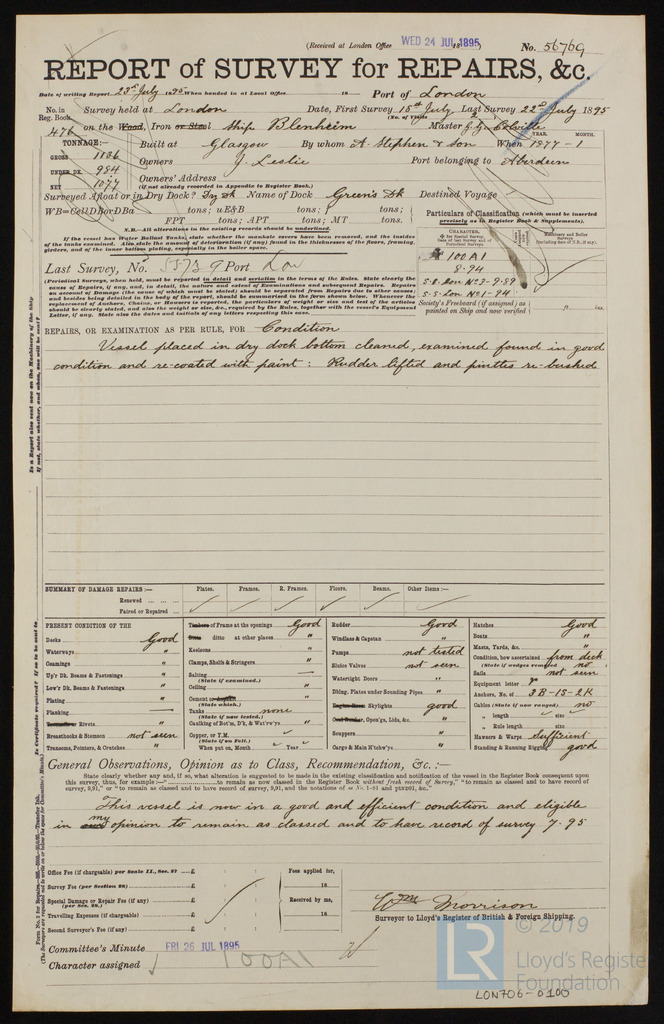 (Received at London Office WED 24 JUL 1895 18 ) No. 56769
REPORT of SURVEY for REPAIRS, &c.
Date of writing Report 23rd July 1895 When handed in at Local Office 18 Port of London
No. in Reg. Book. Survey held at London Date, First Survey 15th July, Last Survey 22nd July 1895
(No. of Visits 2)
476 on the Wood, Iron or Steel Ship Blenheim Master Colville
TONNAGE:— Built at Glasgow By whom A Stephen & Son When YEAR. 1877 MONTH. 1
GROSS 1186 Owners J. Leslie Port belonging to Aberdeen
UNDER DK. 984 Owners' Address
NET 1077 (if not already recorded in Appendix to Register Book.)
Surveyed Afloat or in Dry Dock? Dry Dk Name of Dock Green's Dk Destined Voyage
WB=CellDBorDBa tons; uE&B tons; tons;
FPT tons; APT tons; MT tons.
Particulars of Classification (which must be inserted precisely as in Register Book & Supplements).
N.B.—All alterations in the existing records should be underlined.
If the vessel has Water Ballast Tanks, state whether the manhole covers have been removed, and the insides of the tanks examined. Also state the amount of deterioration (if any) found in the thicknesses of the floors, framing, girders, and of the inner bottom plating, especially in the boiler space.
CHARACTER.
100A1
8-94
S.S. Lon No 3-9-89
S.S. Lon No 1-94
Last Survey, No. 55739 Port Lon
(Periodical Surveys, when held, must be reported in detail and seriatim in the terms of the Rules. State clearly the cause of Repairs, if any, and, in detail, the nature and extent of Examinations and subsequent Repairs. Repairs on account of Damage (the cause of which must be stated) should be separated from Repairs due to other causes; and besides being detailed in the body of the report, should be summarised in the form shewn below. Whenever the Replacement of Anchors, Chains, or Hawsers is reported, the particulars of weight or size and test of the articles should be clearly stated, and also the weight or size, &c., required by the Rules, together with the vessel's Equipment Letter, if any. State also the dates and initials of any letters respecting this case.
Society's Freeboard (if assigned) as painted on Ship and now verified } ft. ins.
REPAIRS, OR EXAMINATION AS PER RULE, FOR Condition
Vessel placed in dry dock bottom cleaned, examined found in good
condition and re-coated with paint: Rudder lifted and pintles re-bushed
SUMMARY OF DAMAGE REPAIRS:— Plates. Frames. R. Frames. Floors. Beams. Other Items:—
Renewed
Faired or Repaired
PRESENT CONDITION OF THE
Decks Good
Waterways "
Coamings "
Up'r Dk. Beams & Fastenings "
Low'r Dk. Beams & Fastenings "
Plating "
Planking
Treenails or Rivets "
Breasthooks & Stemson not seen
Transoms, Pointers, & Crutches "
Timbers or Frame at the openings Good
Ditto ditto at other places "
Keelsons "
Clamps, Shelfs & Stringers "
Salting
(State if examined.)
Ceiling "
Cement or Asphalte "
(State which.)
Tanks none
(State if now tested.)
Caulking of Bot'm, D'k, & Wat'rw'ys "
Copper, or Y.M.
(State if on Felt.)
When put on, Month Year
Rudder Good
Windlass & Capstan "
Pumps not tested
Sluice Valves not seen
Watertight Doors "
Dblng. Plates under Sounding Pipes "
Engine Room Skylights good
Coal Bunker, Open'gs, Lids, &c. "
Scuppers "
Cargo & Main H'tchw'ys "
Hatches Good
Boats "
Masts, Yards, &c. "
Condition, how ascertained from deck
(State if wedges removed) no
Sails not seen
Equipment letter
Anchors, No. of 3B-1S-2K
Cables (State if now ranged) no
" length size
" Rule length size
Hawsers & Warps Sufficient
Standing & Running Rigging good
General Observations, Opinion as to Class, Recommendation, &c.:—
State clearly whether any, and if so, what alteration is suggested to be made in the existing classification and notification of the vessel in the Register Book consequent upon this survey,
This vessel is now in a good and efficient condition and eligible
in my opinion to remain as classed and to have record of survey 7-95
Office Fee (if chargeable) per Scale II., Sec. 27 £
Survey Fee (per Section 28) £
Special Damage or Repair Fee (if any) £
(per Sec. 28)
Travelling Expenses (if chargeable) £
Second Surveyor's Fee (if any) £
Fees applied for, 18
Received by me, 18
Wm Morrison
Surveyor to Lloyd's Register of British & Foreign Shipping.
Committee's Minute FRI 26 JUL 1895
Character assigned 100A1
© 2019
LR Lloyd's Register Foundation
LON706-0100